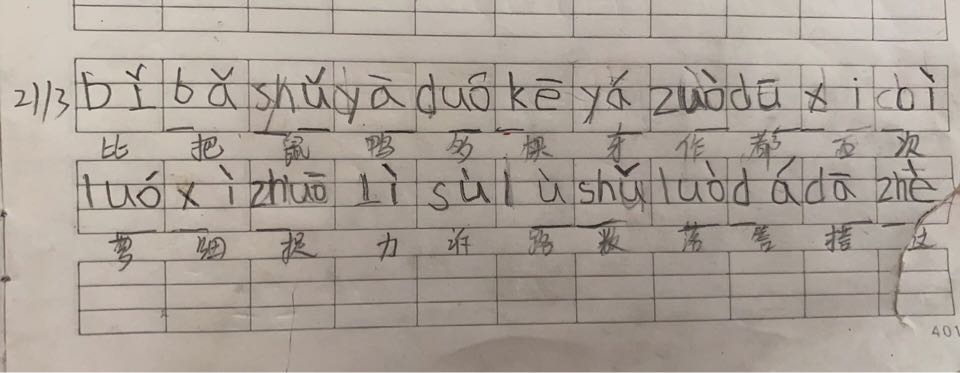 21/3 bǐ bǎ shǔ yā duō kē yá zuò dū xi cì
比 把 鼠 鸭 多 棵 牙 作 都 西 次
luó xì zhuō lì sù lù shǔ luò dá dā zhè
萝 细 捉 力 诉 路 数 落 答 搭 这
401